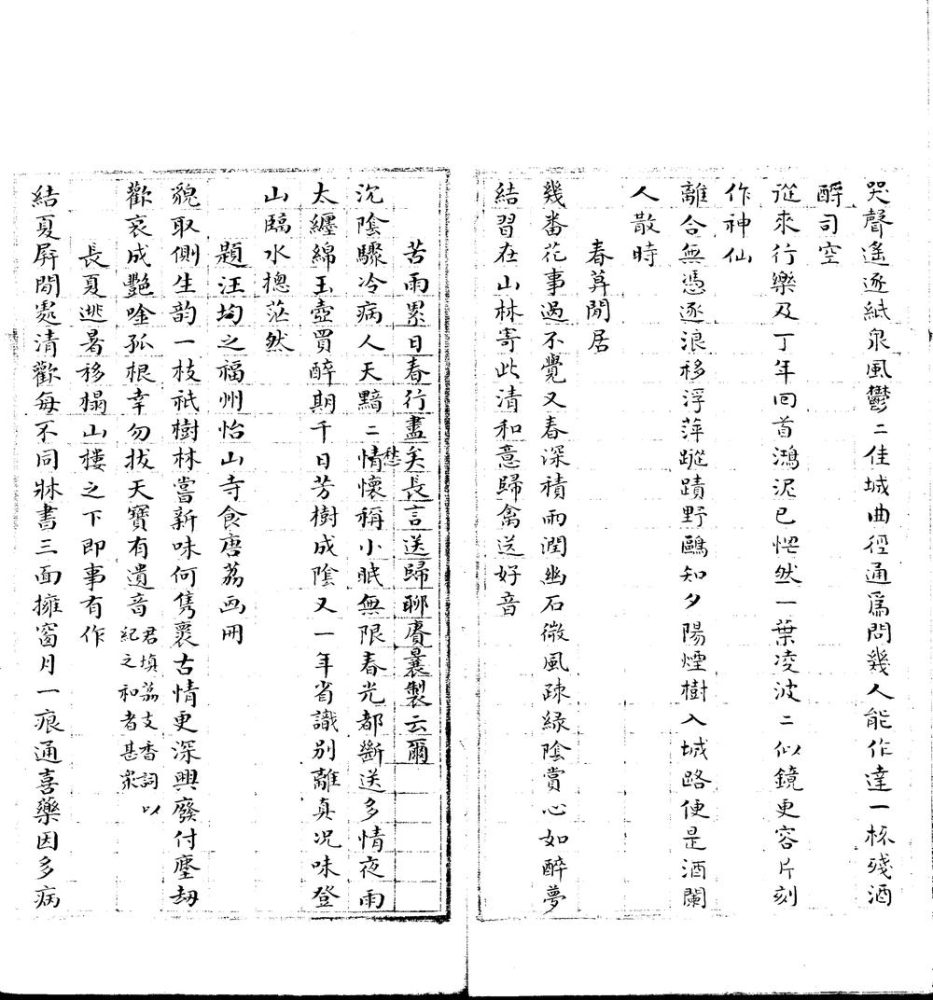 哭聲遙逐紙泉風鬱二佳城曲徑通爲問幾人能作達一杯殘酒
酹司空
從來行樂及丁年回首鴻泥已惘然一葉凌波二似鏡更容片刻
作神仙
離合無憑逐浪移浮萍蹤蹟野鷗知夕陽煙樹入城路便是酒闌
人散時
春莫閒居
幾番花事過不覺又春深積雨潤幽石微風疎綠陰賞心如醉夢
結習在山林寄此清和意歸禽送好音
苦雨累日春行盡矣長言送歸聊賡曩製云爾
沉陰驟冷病人天黯二情愁懷稱小眠無限春光都斷送多情夜雨
太纏綿玉壺買醉期千日芳樹成陰又一年省識別離真况味登
山臨水摠茫然
題汪均之福州怡山寺食唐荔画冊
貌取側生韵一枝祇樹林嘗新味何雋褱古情更深興廢付塵劫
歡哀成艷唫孤根幸勿拔天寶有遺音君填荔支香詞以
紀之和者甚眾
長夏逃暑移榻山樓之下即事有作
結夏屏間處清歡每不同牀書三面擁窗月一痕通喜藥因多病